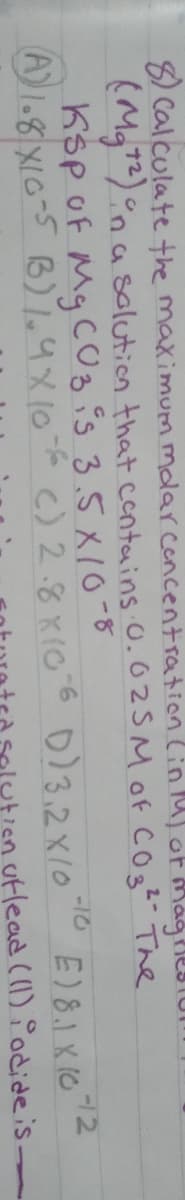 8) Calculate the maximum molar concentration (in M) of
(Mg⁺²) in a solution that contains 0.025 M of CO₃²⁻ The
Ksp of MgCO₃ is 3.5 X 10⁻⁸
A) 1.8 X10⁻⁵ B) 1.4 X 10⁻⁶ C) 2.8 X10⁻⁶ D) 3.2 X10⁻¹⁰ E) 8.1 X 10⁻¹²
solution of lead (II) iodide is